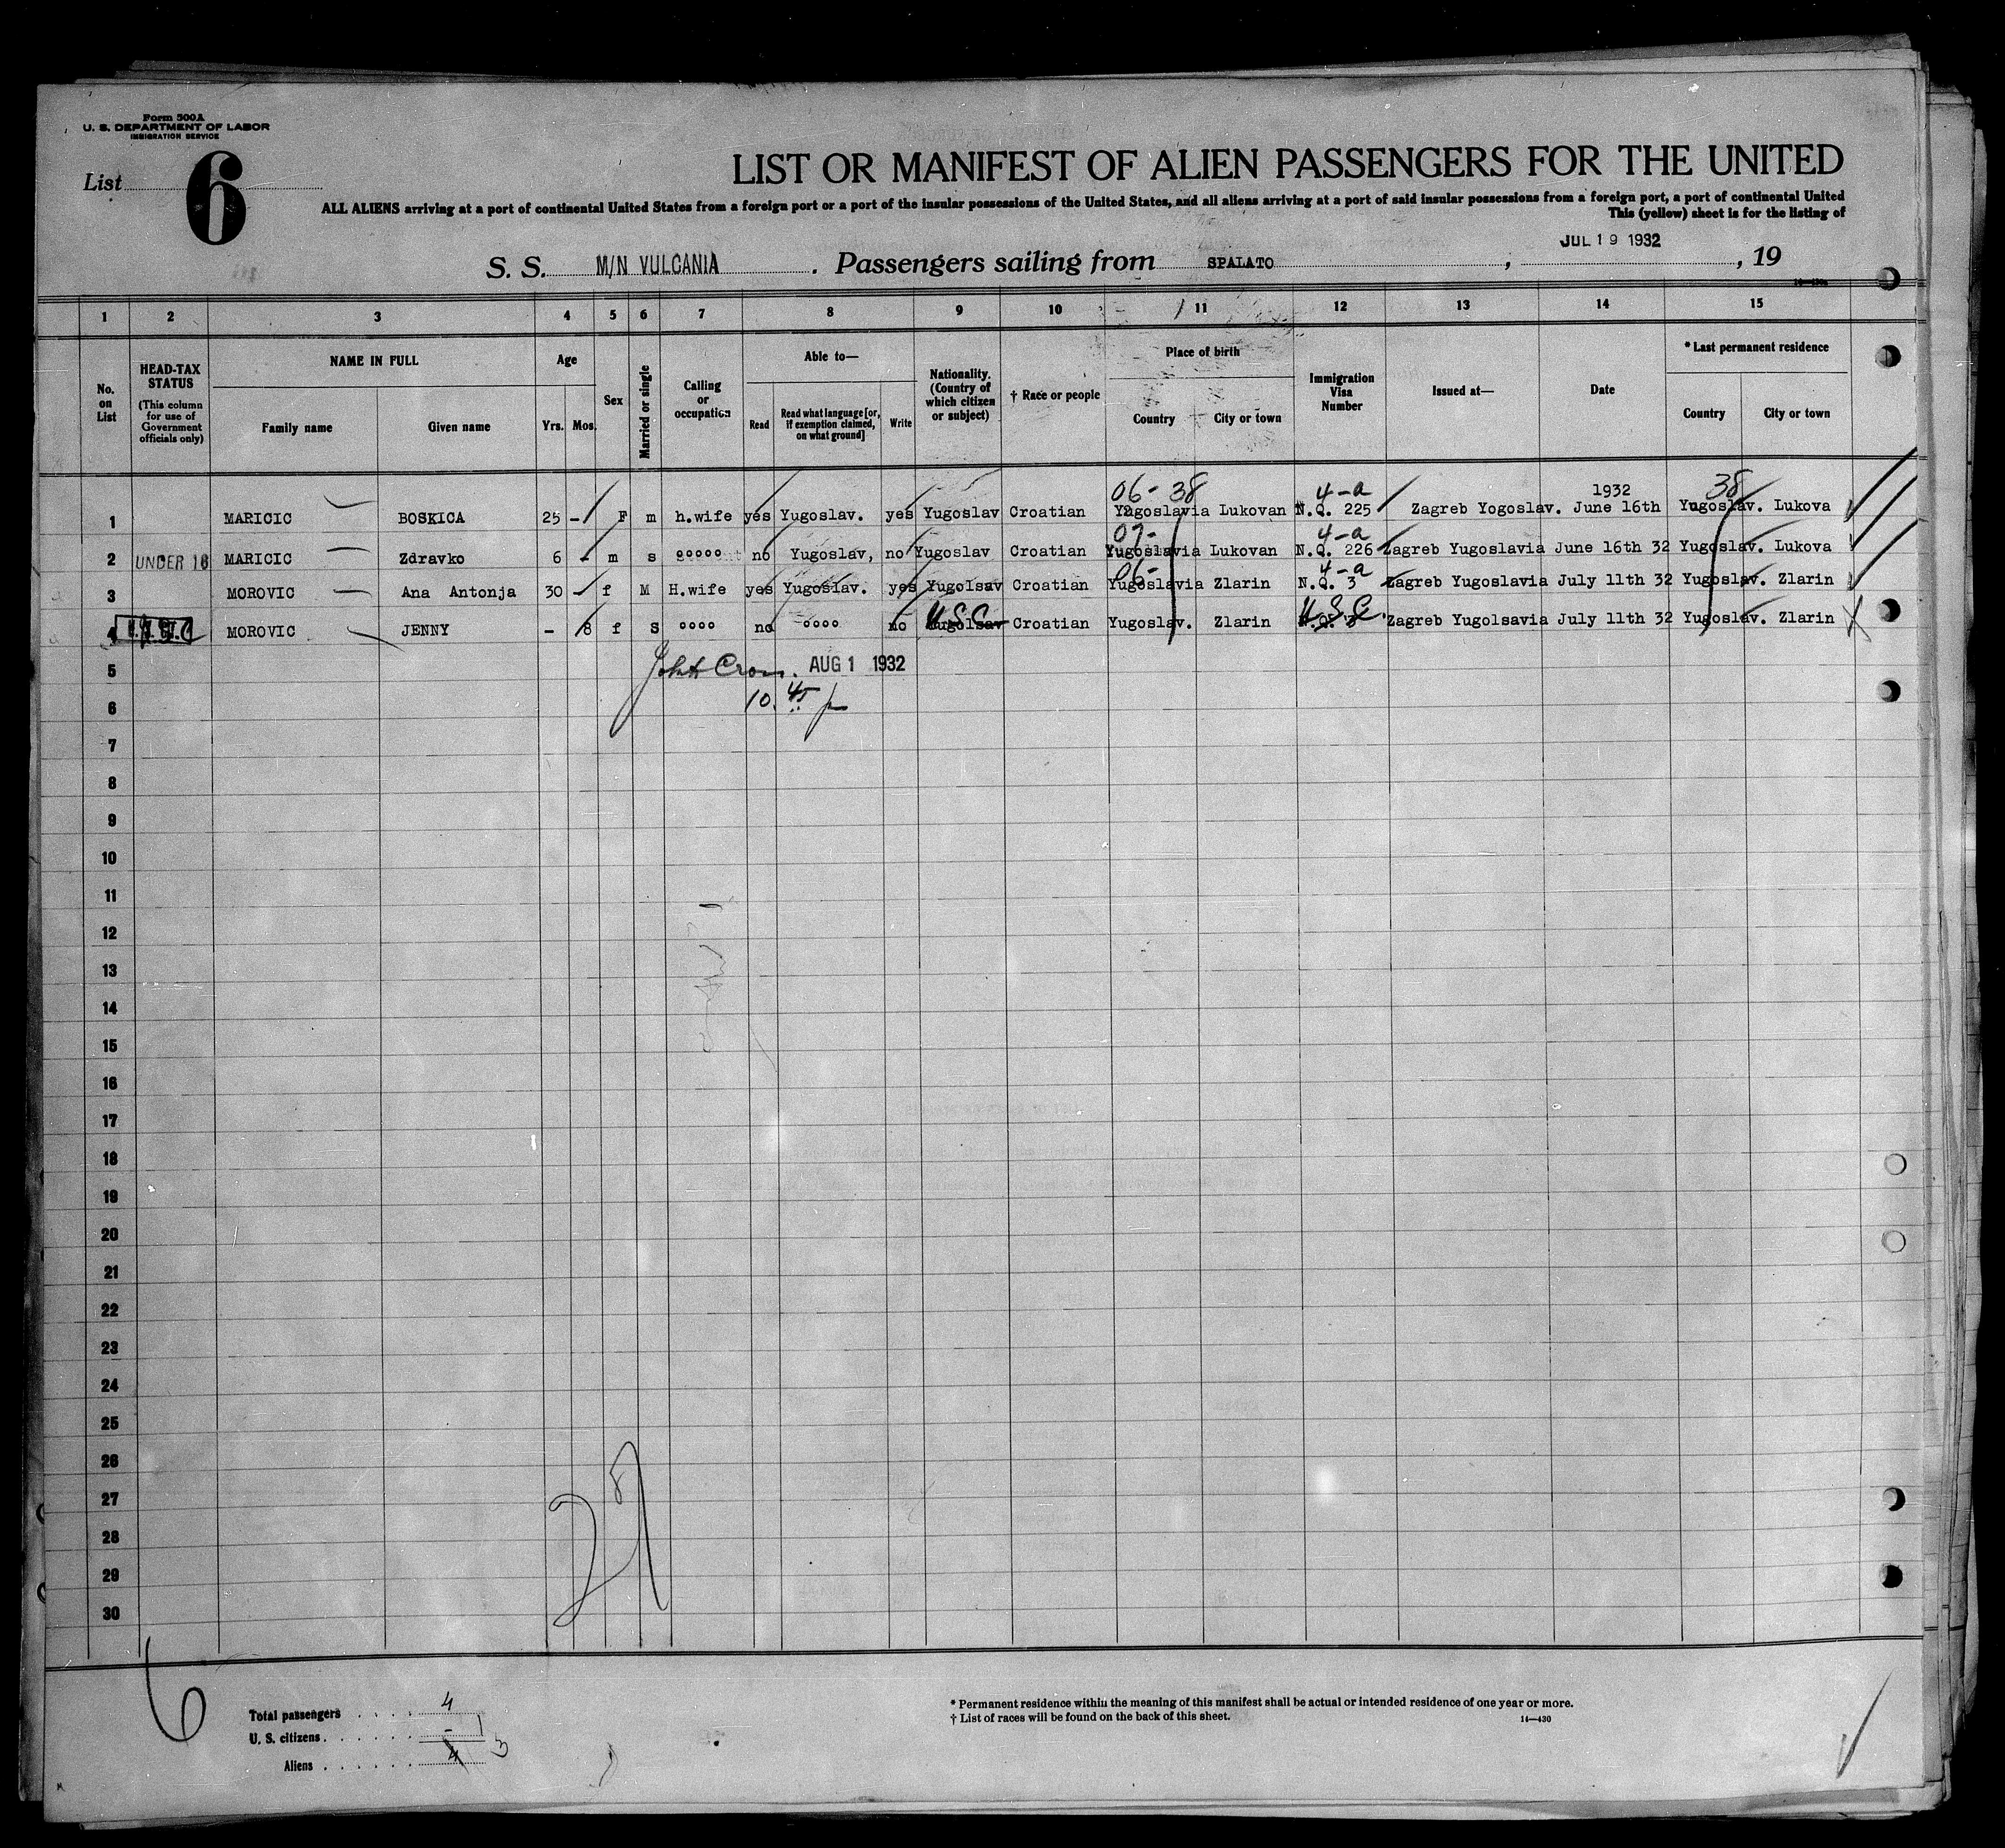 Form 500A
U. S. DEPARTMENT OF LABOR
IMMIGRATION SERVICE
List 6
LIST OR MANIFEST OF ALIEN PASSENGERS FOR THE UNITED
ALL ALIENS arriving at a port of continental United States from a foreign port or a port of the insular possessions of the United States, and all aliens arriving at a port of said insular possessions from a foreign port, a port of continental United
This (yellow) sheet is for the listing of
JUL 19 1932
S. S. M/N VULCANIA. Passengers sailing from SPALATO, , 19
1 2 3 4 5 6 7 8 9 10 11 12 13 14 15
No. on List
HEAD-TAX STATUS
(This column for use of Government officials only)
NAME IN FULL
Family name
Given name
Age
Yrs. Mos.
Sex
Married or single
Calling or occupation
Able to—
Read
Read what language [or, if exemption claimed, on what ground]
Write
Nationality. (Country of which citizen or subject)
† Race or people
Place of birth
Country
City or town
Immigration Visa Number
Issued at—
Date
* Last permanent residence
Country
City or town
06- 38 4-a 1932 38
1 MARICIC BOSKICA 25 - F m h.wife yes Yugoslav. yes Yugoslav Croatian Yugoslavia Lukovan N.Q. 225 Zagreb Yogoslav. June 16th Yugoslav. Lukova
07- 4-a
2 UNDER 16 MARICIC Zdravko 6 - m s ooooo no Yugoslav, no Yugoslav Croatian Yugoslavia Lukovan N.Q. 226 Zagreb Yugoslavia June 16th 32 Yugoslav. Lukova
06- 4-a
3 MOROVIC Ana Antonja 30 - f M H.wife yes Yugoslav. yes Yugolsav Croatian Yugoslavia Zlarin N.Q. 3 Zagreb Yugoslavia July 11th 32 Yugoslav. Zlarin
4 MOROVIC JENNY - 8 f S oooo no oooo no U.S.C. Yugolsav Croatian Yugoslav. Zlarin U.S.C. Zagreb Yugolsavia July 11th 32 Yugoslav. Zlarin
5 AUG 1 1932
6 10.45 p
7
8
9
10
11
12
13
14
15
16
17
18
19
20
21
22
23
24
25
26
27
28
29
30
6
Total passengers 4
U. S. citizens - 1
Aliens 4 3
* Permanent residence within the meaning of this manifest shall be actual or intended residence of one year or more.
† List of races will be found on the back of this sheet.
14—430